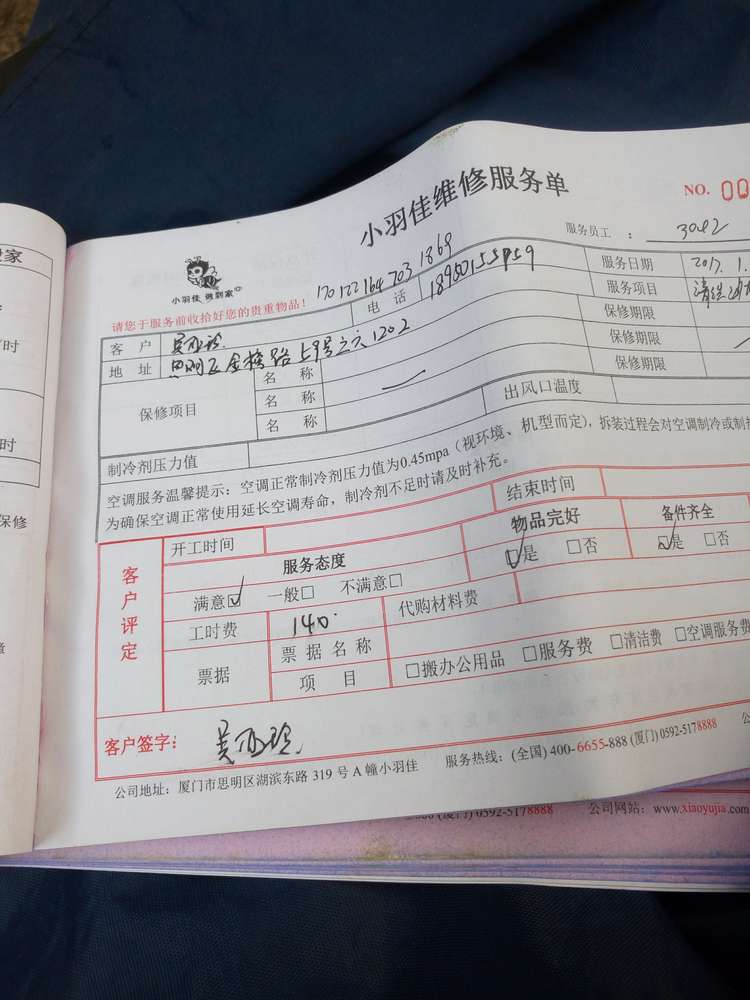 小羽佳维修服务单
NO. 00
服务员工：3042
小羽佳 做到家
请您于服务前收拾好您的贵重物品！
170122164 703 1869
客 户
电 话
服务日期 2017. 1.
地 址 思明区金榜路
1202
服务项目 清洗
保修项目
名 称
保修期限
名 称
保修期限
名 称
保修期限
制冷剂压力值
出风口温度
空调服务温馨提示：空调正常制冷剂压力值为0.45mpa（视环境、机型而定），拆装过程会对空调制冷或制
为确保空调正常使用延长空调寿命，制冷剂不足时请及时补充。
客户评定
开工时间
结束时间
服务态度
物品完好
备件齐全
满意☑ 一般□ 不满意□
☑是 □否
☑是 □否
工时费 140.
代购材料费
票据
票 据 名 称
项 目
□搬办公用品 □服务费 □清洁费 □空调服务费
客户签字：
公司地址：厦门市思明区湖滨东路 319 号 A 幢小羽佳 服务热线：(全国) 400-6655-888 (厦门) 0592-5178888
(厦门) 0592-5178888 公司网站：www.xiaoyujia.com
家
时
时
保修